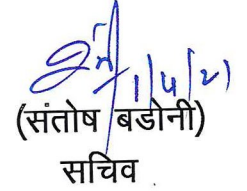 1/4/21
(संतोष बडोनी)
सचिव